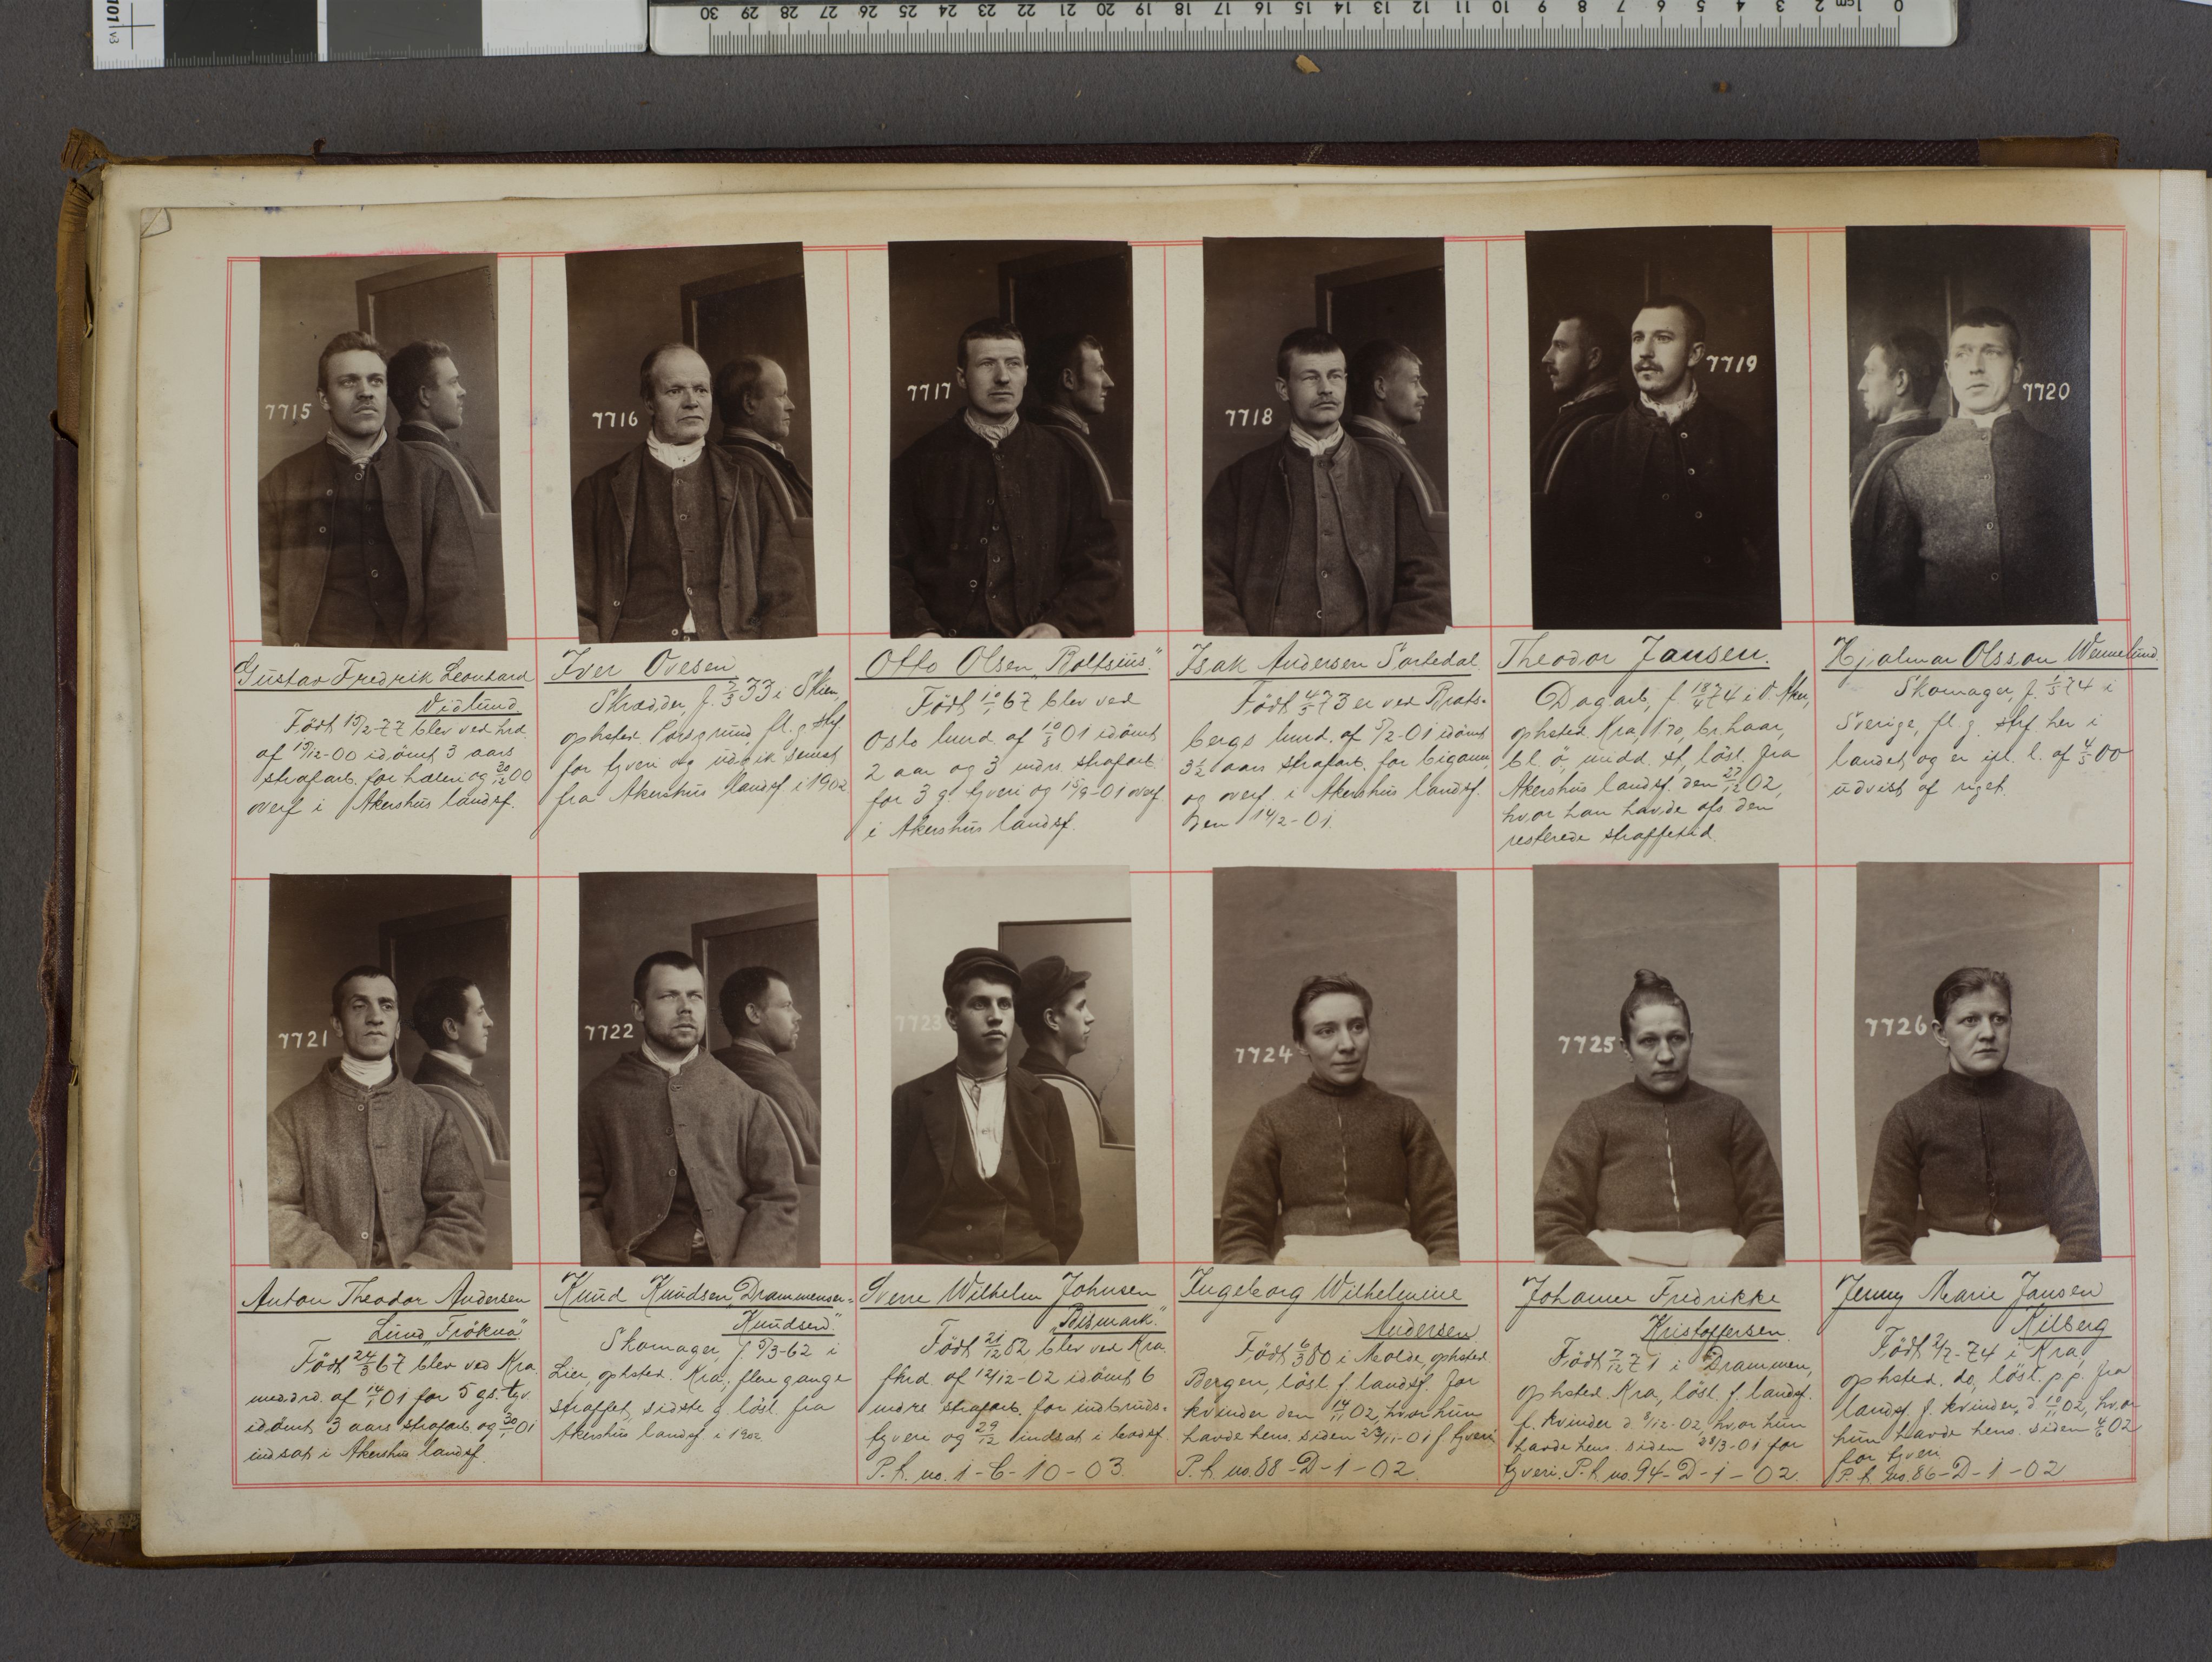 101 v3
30 29 28 27 26 25 24 23 22 21 20 19 18 17 16 15 14 13 12 11 10 9 8 7 6 5 4 3 2 1cm 0
7715
7716
7717
7718
7719
7720
Gustav Fredrik Leonhard
Vidlund.
Født 15/2-77 blev ved hrd.
af 15/12-00 idömt 3 aars
strafarb. for hæleri og 30/12 00
overf i Akershus landsf.
Iver Ovesen
Skrædder, f. 2/3 33 i Skien,
ophsted. Porsgrund, fl. g. stf
for tyveri og udgik senest
fra Akershus landsf i 1902
Otto Olsen „Roltsius".
Født 10/1 67 blev ved
Oslo lund. af 10/8 01 idömt
2 aar og 3 mdrs. strafarb.
for 3 g. tyveri og 15/9-01 overf.
i Akershus landsf.
Isak Andersen Sartedal.
Født 4/5 73 er ved Brats-
bergs lund. af 5/2-01 idömt
3½ aars strafarb. for bigami,
og overf. i Akershus landsf.
den 14/2-01.
Theodor Jansen.
Dagarb., f 18/4 74 i V. Aker,
ophsted. Kra, 170, br. haar,
bl. ö, midd. st, lösl. fra
Akershus landsf. den 27/12 02,
hvor han havde afs den
resterede straffetid.
Hjalmar Olsson Wennelund.
Skomager, f. 1/5 74 i
Sverige, fl. g. stf. her i
landet, og er ifl. l. af 4/5 00
udvist af riget.
7721
7722
7723
7724
7725
7726
Anton Theodor Andersen
Lund „Frökna"
Født 24/3 67 blev ved Kra.
meddrd. af 14/1 01 for 5 gs. tyv.
idömt 3 aars strafarb. og 30/1 01
indsat i Akershus landsf.
Knud Knudsen „Drammenser-
Knudsen"
Skomager, f 5/3-62 i
Lier, ophsted. Kra., flere gange
straffet, sidste g. lösl. fra
Akershus landsf i 1902
Sverre Wilhelm Johnsen
„Bismark".
Født 21/12 82 blev ved Kra.
fhrd. af 12/12-02 idömt 6
mdrs strafarb. for indbruds-
tyveri og 29/12 indsat i bodsf.
P. k. no. 1-C-10-03.
Ingeborg Wilhelmine
Andersen.
Født 6/3 80 i Molde, ophsted.
Bergen, lösl. f. landsf. for
kvinder den 14/11 02, hvor hun
havde hens. siden 23/11-01 f. tyveri
P. k. no. 88-D-1-02.
Johanne Fredrikke
Kristoffersen.
Født 7/12 71 i Drammen,
ophsted. Kra, lösl. f. landsf.
f. kvinder d. 8/12-02, hvor hun
havde hens. siden 28/3-01 for
tyveri. P. k. no. 94-D-1-02.
Jenny Marie Jansen
Kilberg
Født 2/2-74 i Kra,
ophsted. do, lösl. p. p. fra
landsf f. kvinder, d 10/11 02, hvor
hun havde hens. siden 4/6 02
for tyveri.
P. k. no. 86-D-1-02